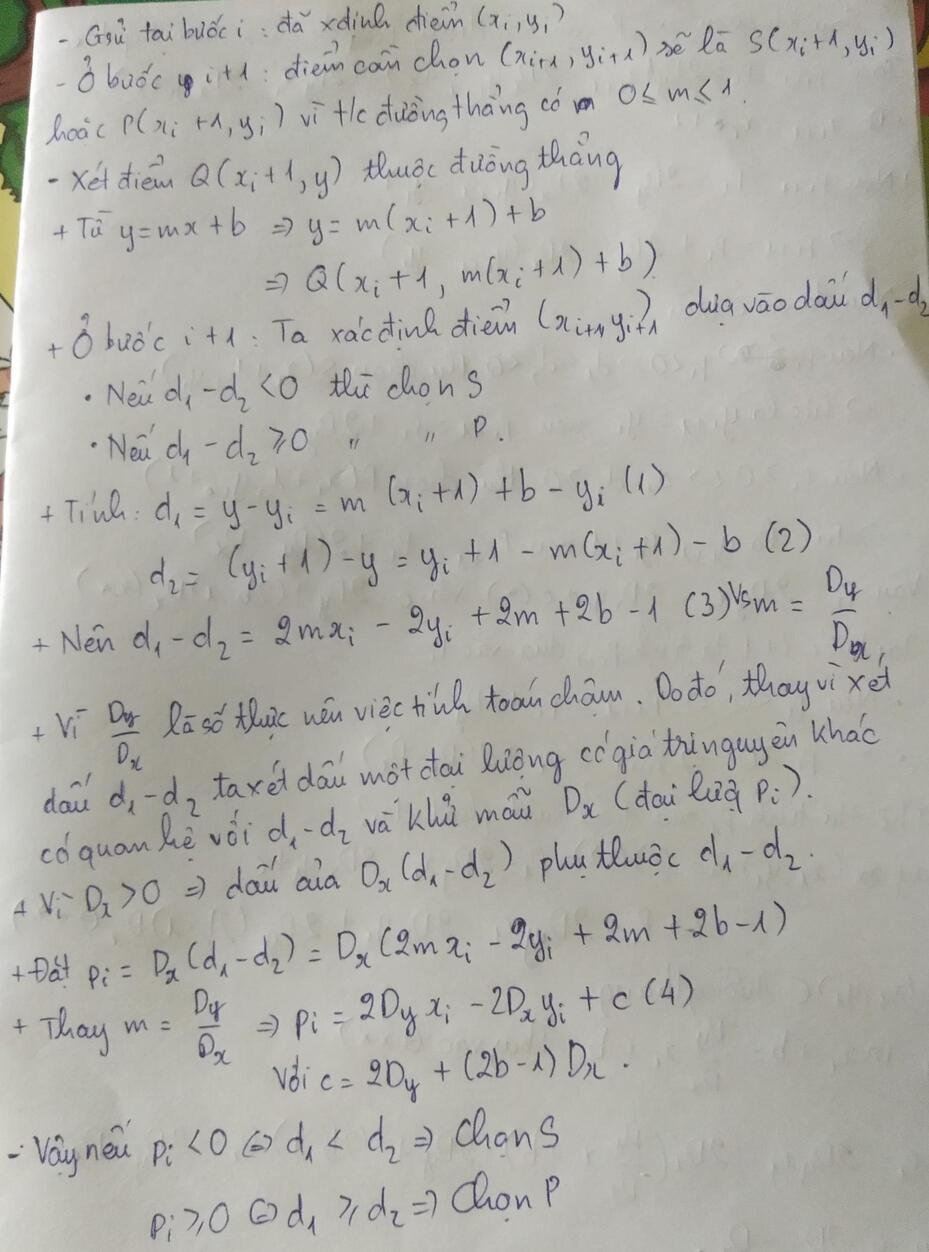 - Gsử tại bước i : đã xđịnh điểm (xᵢ, yᵢ)
- Ở bước i+1 : điểm cần chọn (xᵢ₊₁, yᵢ₊₁) sẽ là S(xᵢ+1, yᵢ)
hoặc P(xᵢ+1, yᵢ) vì t/c đường thẳng có 0 ≤ m ≤ 1.
- Xét điểm Q(xᵢ+1, y) thuộc đường thẳng
+ Từ y = mx + b ⇒ y = m(xᵢ+1) + b
⇒ Q(xᵢ+1, m(xᵢ+1) + b)
+ Ở bước i+1 : Ta xác định điểm (xᵢ₊₁, yᵢ₊₁) dựa vào dấu d₁ - d₂
• Nếu d₁ - d₂ < 0 thì chọn S
• Nếu d₁ - d₂ ≥ 0 " " P.
+ Tính: d₁ = y - yᵢ = m (xᵢ+1) + b - yᵢ (1)
d₂ = (yᵢ+1) - y = yᵢ + 1 - m(xᵢ+1) - b (2)
+ Nên d₁ - d₂ = 2mxᵢ - 2yᵢ + 2m + 2b - 1 (3) Vs m = Dy/Dx
+ Vì Dy/Dx là số thực nên việc tính toán chậm. Do đó, thay vì xét
dấu d₁ - d₂ ta xét dấu một đại lượng có giá trị nguyên khác
có quan hệ với d₁ - d₂ và khử mẫu Dx (đại lượng Pᵢ).
+ Vì Dx > 0 ⇒ dấu của Dx(d₁ - d₂) phụ thuộc d₁ - d₂.
+ Đặt pᵢ = Dx(d₁ - d₂) = Dx(2mxᵢ - 2yᵢ + 2m + 2b - 1)
+ Thay m = Dy/Dx ⇒ pᵢ = 2Dy xᵢ - 2Dx yᵢ + c (4)
Với c = 2Dy + (2b-1) Dx.
- Vậy nếu pᵢ < 0 ⇔ d₁ < d₂ ⇒ Chọn S
pᵢ ≥ 0 ⇔ d₁ ≥ d₂ ⇒ Chọn P